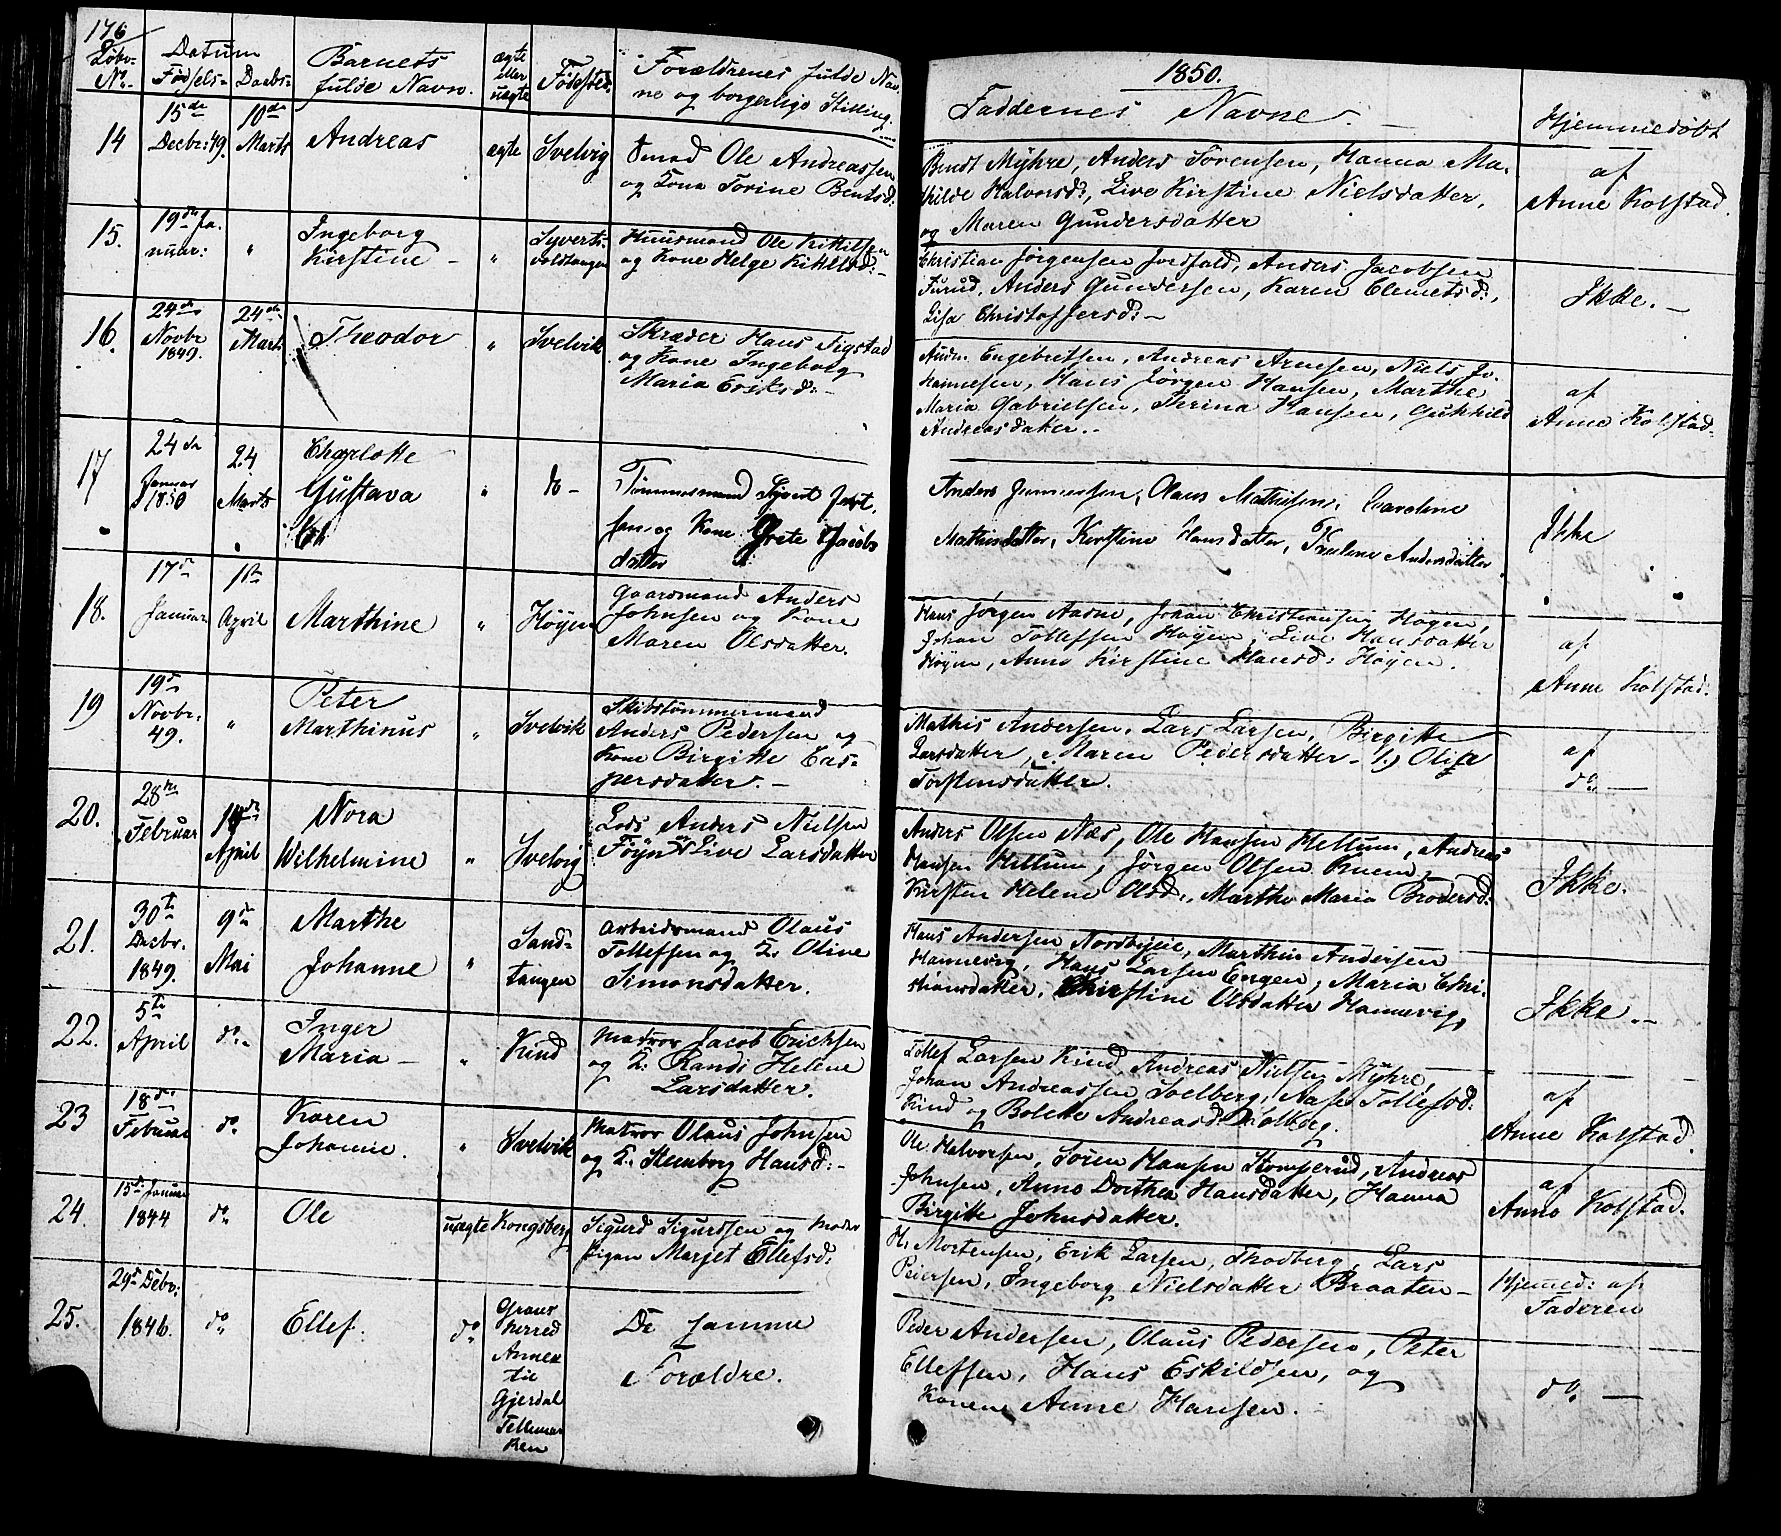 176
Løbe-
No.
Datum
Fødsels- Daabs-
Barnets
fulde Navn.
ægte
eller
uægte
Fødested.
Forældrenes fulde Nav-
ne og borgerlige Stilling.
1850.
Faddernes Navne.
Hjemmedøbt
14
15de
Decbr: 49.
10de
Marts
Andreas
ægte
Svelvig
Smed Ole Andreassen
og Kona Torine Bentsd:
Bendt Myhre, Anders Sørensen, Hanna Ma-
thilde Halvorsd:, Live Kirstine Nielsdatter,
og Maren Gundersdatter
af
Anne Kolstad.
15.
19de Ja-
nuar:
"
Ingeborg
Kirstine -
"
Syverts-
voldtangen
Huusmand Ole Kittilsen
og Kone Helge Kittilsd: -
Christian Jørgensen Jordfald, Anders Jacobsen
Furud, Anders Gundersen, Karen Clemetsd:,
Lisa Christoffersd: -
Ikke. -
16.
24de
Novbr
1849.
24de
Mart.
Theodor
"
Svelvik
Skræder Hans Tigstad
og Kone Ingeborg
Maria Eriksd: -
Engebretsen, Andreas Arnesen, Niels Jo-
hannesen, Hans Jørgen Hansen, Marthe
Maria Gabrielsen, Thrina Hansen,
Andreasdatter. -
af
Anne Kolstad.
17
24de
Januar
1850
24
Marts
Charlotte
Gustava
"
do -
Tømmermand Syvert
sen og Kone Grete Jacobs
datter
Anders Gunnersen, Olaus Mathisen, Caroline
Mathisdatter, Kirstine Hansdatter, Pauline Andersdatter.
Ikke
18.
17de
Januar
1ste
April
Marthine
"
Høyen
Gaardmand Anders
Johnsen og Kone
Maren Olsdatter.
Hans Jørgen Aasne, Johan Christiansen Høyen,
Johan Tollefsen Høyen, Live Hansdatter
Høyen, Anne Kirstine Hansd: Høyen.
af
Anne Kolstad.
19
19de
Novbr:
49.
"
Peter
Marthinus
"
Svelvik
Skibstømmermand
Anders Pedersen og
Kone Birgitte Cas-
persdatter. -
Mathis Andersen, Lars Larsen, Birgitte
Larsdatter, Maren Pedersdatter - Olise
Torstensdatter.
af
do -
20.
28de
Februar
14de
April
Nora
Wilhelmine
"
Svelvig
Lods Anders Nielsen
Føyn & Live Larsdatter
Anders Olsen Næs, Ole Hansen Hellum, Andreas
Hansen Hellum, Jørgen Olsen Knem,
Kirsten Helene Olsd:, Marthe Maria Brodersd:
Ikke.
21.
30te
Decbr.
1849.
9de
Mai
Marthe
Johanne
"
Sand-
tangen
Arbeidsmand Olaus
Tollefsen og K: Oline
Simonsdatter.
Hans Andersen Nordbyeie, Marthin Andersen
Hannevig, Hans Larsen Engen, Maria Chri-
stiansdatter, Christine Olsdatter Hannevig.
Ikke. -
22.
5te
April
do
Inger
Maria -
"
Kind
Matros Jacob Erichsen
og K: Randi Helene
Larsdatter.
Tollef Larsen Kind, Andreas Nielsen Myhre,
Johan Andreassen Svelberg, Aase Tollefsd:
Kind og Bolette Andreasd: Solberg.
af
Anne Kolstad
23
18de
Februar
do
Karen
Johanne.
"
Svelvik
Matros Olaus Johnsen
og K: Steenborg Hansd: -
Ole Halvorsen, Søren Hansen Komperud, Andreas
Johnsen, Anne Dorthea Hansdatter, Hanna
Birgitte Johnsdatter.
af
Anne Kolstad.
24.
15de Januar
1844
do
Ole
uægte
Kongsberg
Sigurd Sigurdsen og Moder
Pigen Marjet Ellefsd:
H: Mortensen, Erik Larsen, Skodberg, Lars
Peiersen, Ingeborg Nielsdatter Braaten -
Hjemmed: af
Faderen
25.
29de Debr:
1846.
do
Ellef.
do
Grans
herred
Annex
til
Gjerdal
Tellemar
ken
De samme
Forældre.
Peder Andersen, Olaus Pedersen, Peter
Ellefsen, Hans Eskildsen, og
Konen Anne Hansen.
do -